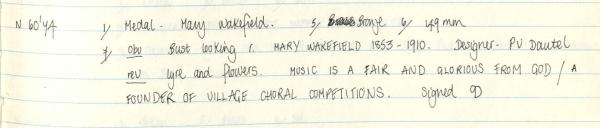 N 60'YA 1/ Medal - Mary Wakefield. 5/ Bronze 6/ 49mm
7/ obv Bust looking r. MARY WAKEFIELD 1853 - 1910. Designer - PV Dautel
rev lyre and flowers. MUSIC IS A FAIR AND GLORIOUS FROM GOD / A
FOUNDER OF VILLAGE CHORAL COMPETITIONS. Signed